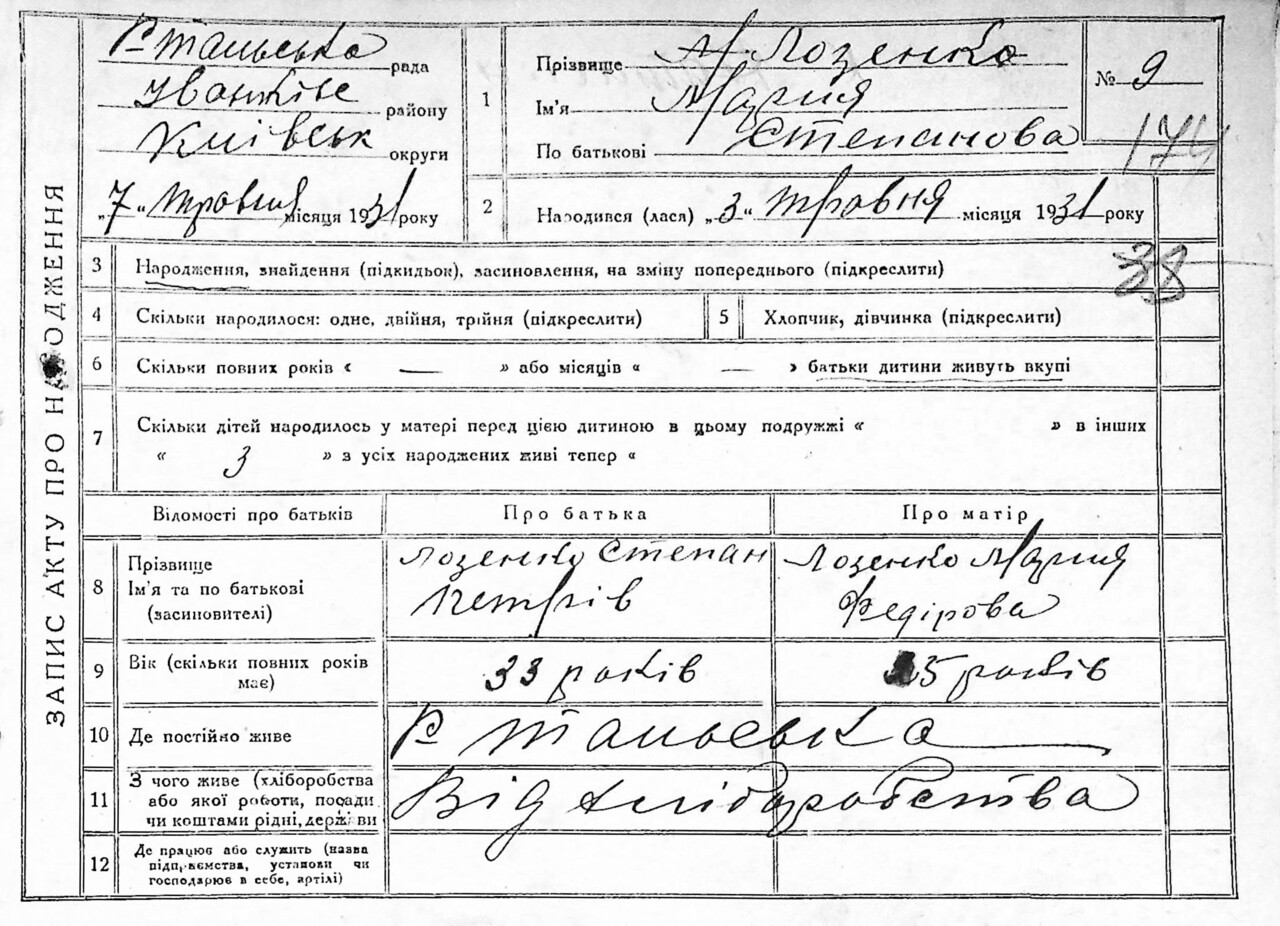 ЗАПИС АКТУ ПРО НАРОДЖЕННЯ
Р-Тальська рада
Іванків району
Київськ округи
„7" травня місяця 1931 року
1
Прізвище Лозенко
Ім'я Мария
По батькові Степанова
№ 9
174
2
Народився (лася) „3" травня місяця 1931 року
38
3 Народження, знайдення (підкидьок), засиновлення, на зміну попереднього (підкреслити)
4 Скільки народилося: одне, двійня, трійня (підкреслити) 5 Хлопчик, дівчинка (підкреслити)
6 Скільки повних років « — » або місяців « — » батьки дитини живуть вкупі
7 Скільки дітей народилось у матері перед цією дитиною в цьому подружжі « » в інших
« 3 » з усіх народжених живі тепер «
Відомості про батьків Про батька Про матір
8
Прізвище
Ім'я та по батькові
(засиновителі)
Лозенко Степан
Петрів
Лозенко Мария
Федірова
9 Вік (скільки повних років
має)
33 років
35 років
10 Де постійно живе Р-Тальська
11
З чого живе (хліборобства
або якої роботи, посади
чи коштами рідні, держави
Від хліборобства
12
Де працює або служить (назва
підприємства, установи чи
господарює в себе, артілі)